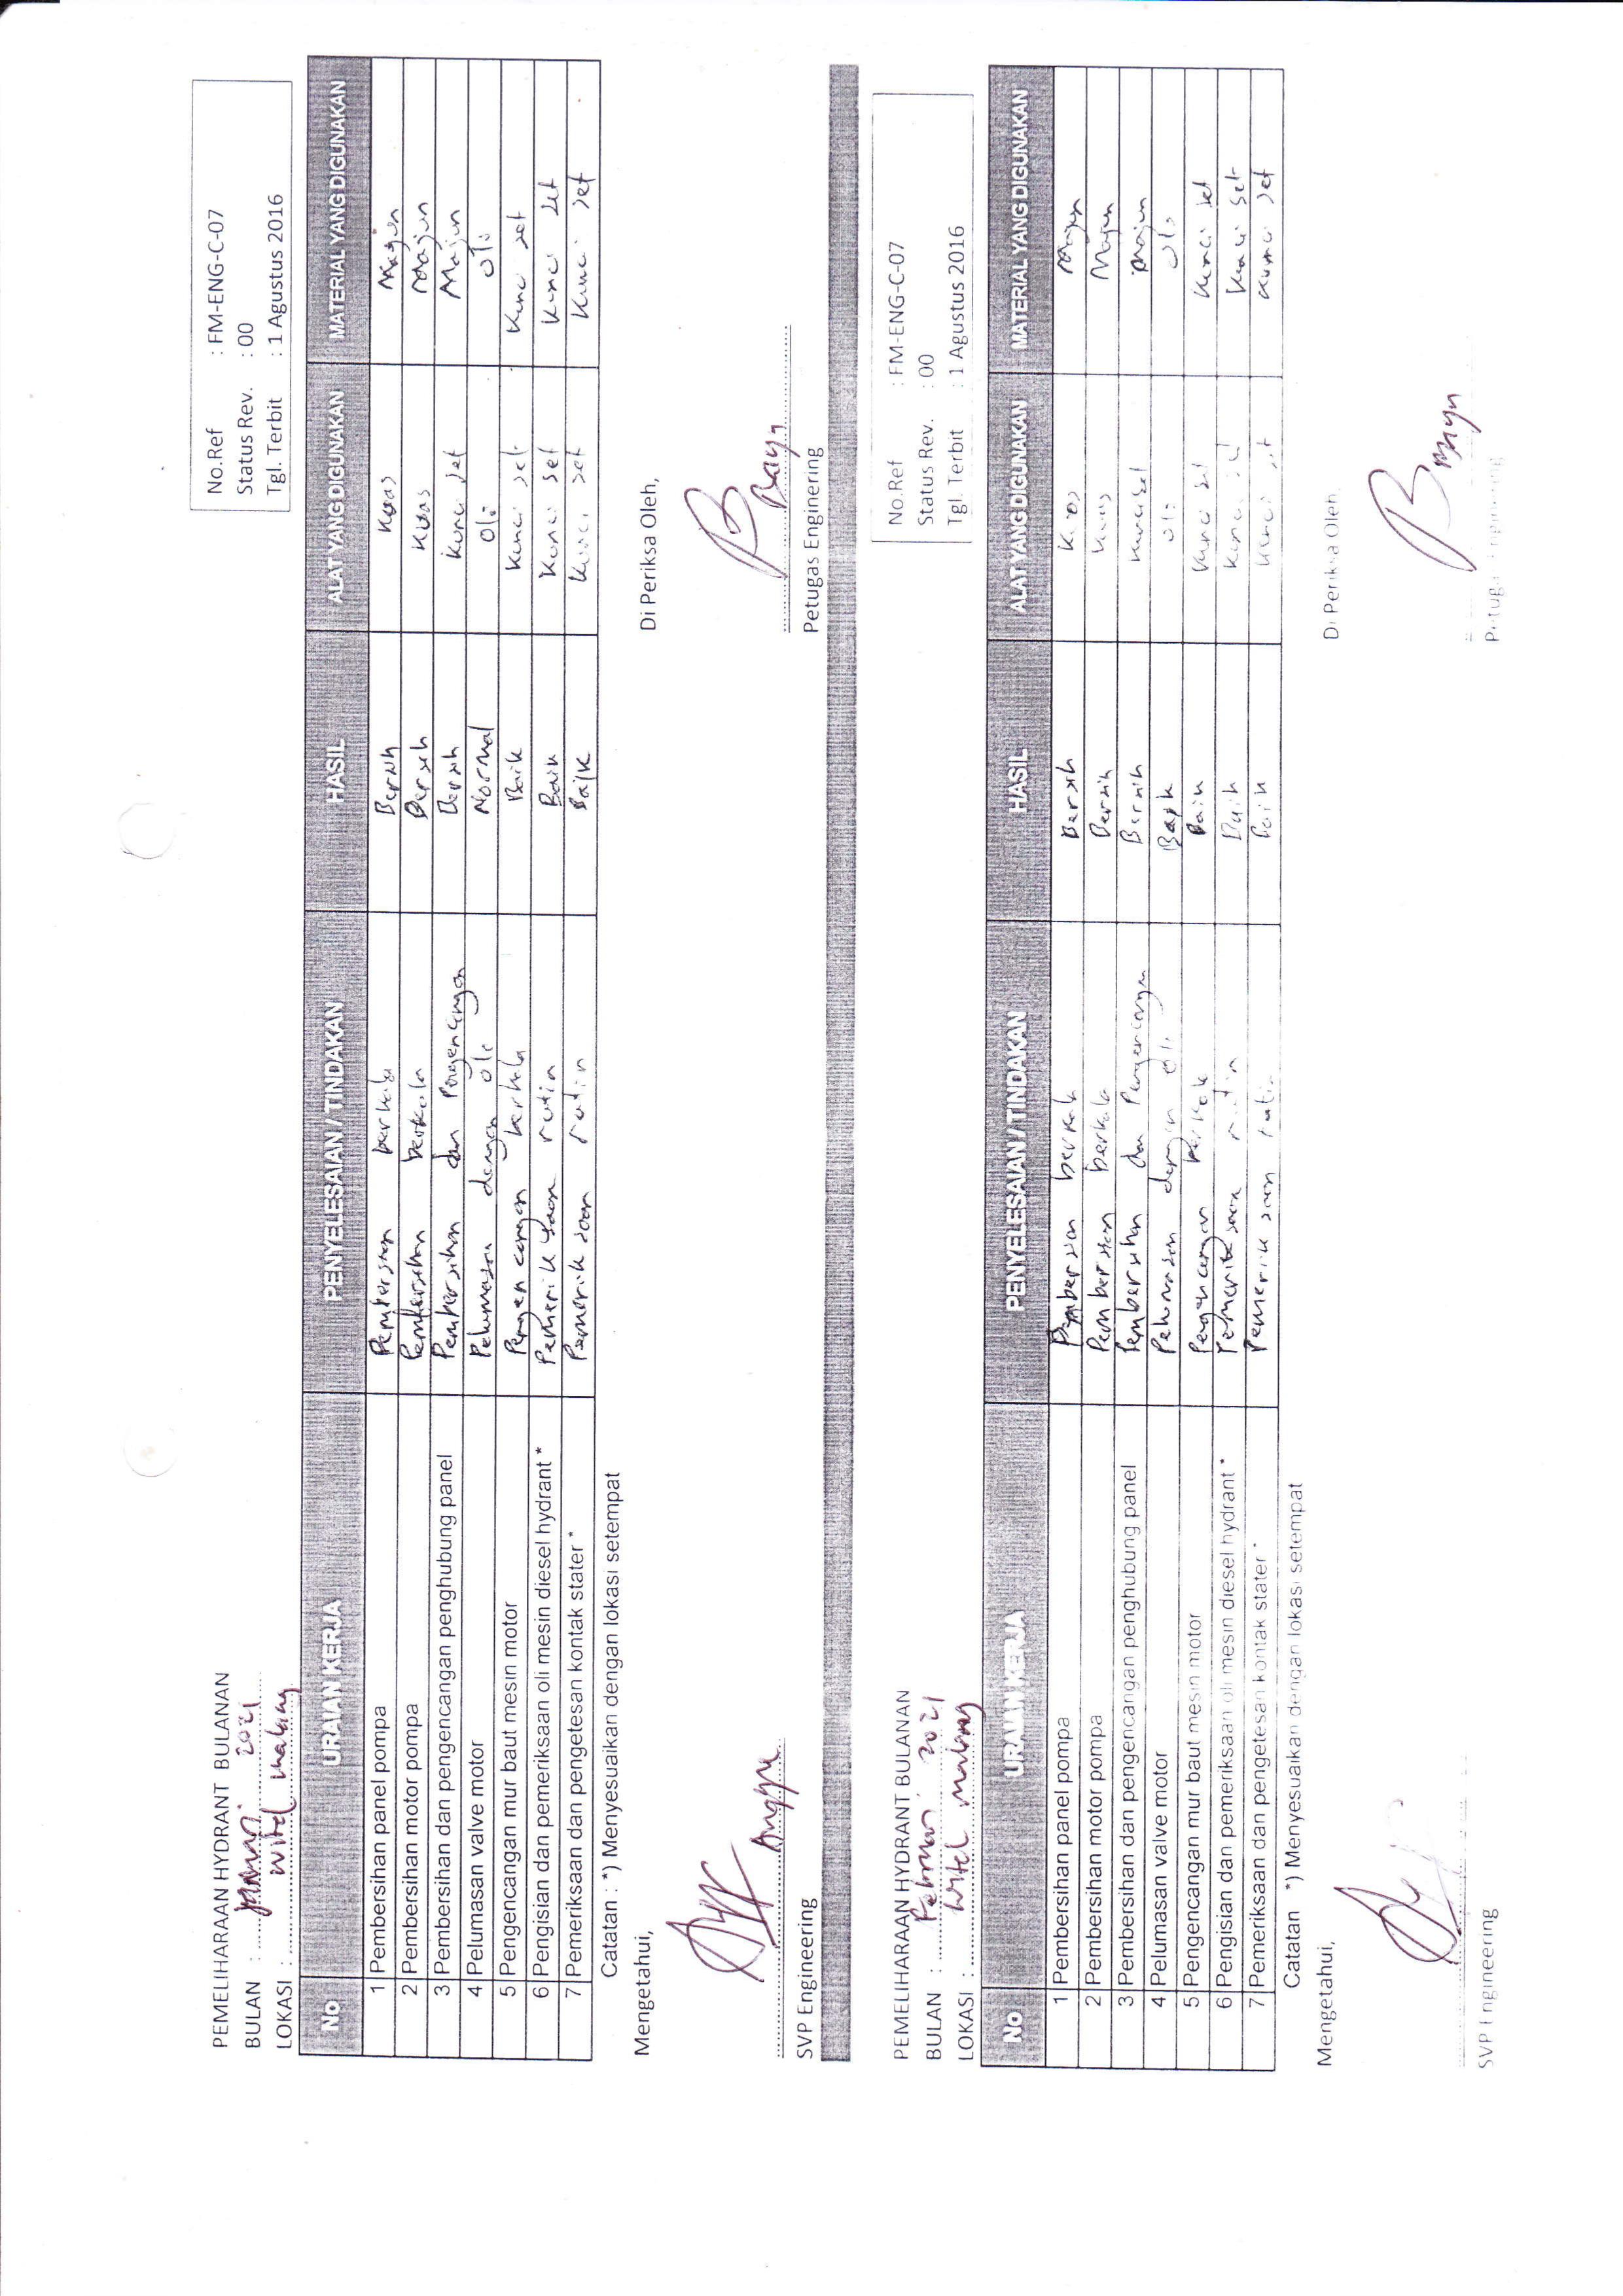 PEMELIHARAAN HYDRANT BULANAN
BULAN : Januari 2021
LOKASI : Witel Malang
No.Ref : FM-ENG-C-07
Status Rev. : 00
Tgl. Terbit : 1 Agustus 2016
No URAIAN KERJA PENYELESAIAN / TINDAKAN HASIL ALAT YANG DIGUNAKAN MATERIAL YANG DIGUNAKAN
1 Pembersihan panel pompa Pembersian berkala Bersih Kuas Majun
2 Pembersihan motor pompa Pembersihan berkala Bersih Kuas Majun
3 Pembersihan dan pengencangan penghubung panel Pembersihan dan Pengencangan Bersih Kunci set Majun
4 Pelumasan valve motor Pelumasan dengan oli Normal Oli Oli
5 Pengencangan mur baut mesin motor Pengencangan berkala Baik Kunci set Kunci set
6 Pengisian dan pemeriksaan oli mesin diesel hydrant * Pemeriksaan rutin Baik Kunci set Kunci set
7 Pemeriksaan dan pengetesan kontak stater * Pemeriksaan rutin Baik Kunci set Kunci set
Catatan : *) Menyesuaikan dengan lokasi setempat
Mengetahui, Di Periksa Oleh,
Angga Bayu
SVP Engineering Petugas Enginering
PEMELIHARAAN HYDRANT BULANAN
BULAN : Februari 2021
LOKASI : Witel Malang
No.Ref : FM-ENG-C-07
Status Rev. : 00
Tgl. Terbit : 1 Agustus 2016
No URAIAN KERJA PENYELESAIAN / TINDAKAN HASIL ALAT YANG DIGUNAKAN MATERIAL YANG DIGUNAKAN
1 Pembersihan panel pompa Pembersian berkala Bersih Kuas Majun
2 Pembersihan motor pompa Pembersian berkala Bersih Kuas Majun
3 Pembersihan dan pengencangan penghubung panel Pembersihan dan Pengencangan Bersih Kunci set Majun
4 Pelumasan valve motor Pelumasan dengan oli Baik Oli Oli
5 Pengencangan mur baut mesin motor Pengencangan berkala Baik Kunci set Kunci set
6 Pengisian dan pemeriksaan oli mesin diesel hydrant * Pemeriksaan rutin Baik Kunci set Kunci set
7 Pemeriksaan dan pengetesan kontak stater * Pemeriksaan rutin Baik Kunci set Kunci set
Catatan *) Menyesuaikan dengan lokasi setempat
Mengetahui, Di Periksa Oleh,
Bayu
SVP Engineering Petugas Enginering